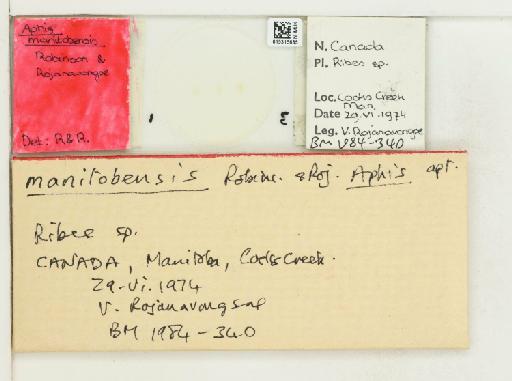 Aphis
manitobensis
Robinson &
Rojanavongse
Det: R&R.
N. Canada
Pl. Ribes sp.
Loc. Cooks Creek
Man.
Date 29.vi.1974
Leg. V. Rojanavongse
BM 1984-340
manitobensis Robins. & Roj. Aphis apt.
Ribes sp.
CANADA, Manitoba, Cooks Creek.
29.vi.1974
V. Rojanavongse
BM 1984-340